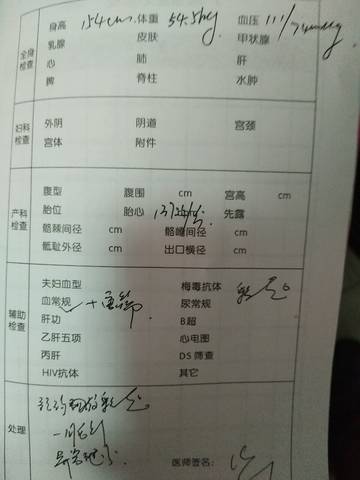 全身检查
身高 154cm 体重 54.5kg 血压 111/
乳腺 皮肤 甲状腺
心 肺 肝
脾 脊柱 水肿
妇科检查
外阴 阴道 宫颈
宫体 附件
产科检查
腹型 腹围 cm 宫高 cm
胎位 胎心 先露
髂棘间径 cm 髂嵴间径 cm
骶耻外径 cm 出口横径 cm
辅助检查
夫妇血型 梅毒抗体
血常规 尿常规
肝功 B超
乙肝五项 心电图
丙肝 DS 筛查
HIV抗体 其它
处理
医师签名: